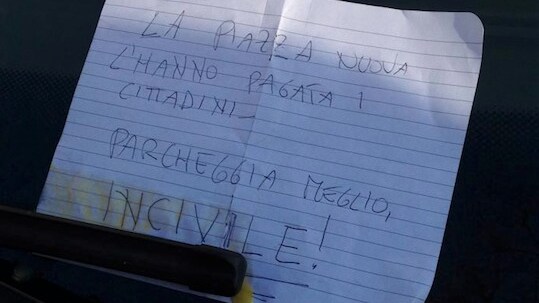 LA PIAZZA NUOVA
L'HANNO PAGATA I
CITTADINI-
PARCHEGGIA MEGLIO,
INCIVILE!